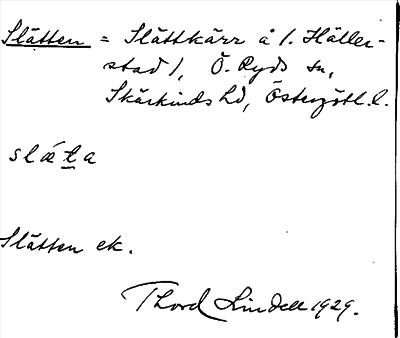 Slätten = Slättkärr å /. Häller-
stad /, Ö. Ryds sn,
Skärkinds hd, Östergötl. l.
slǽt̲a
Slätten ek.
Thord Lindell 1929.